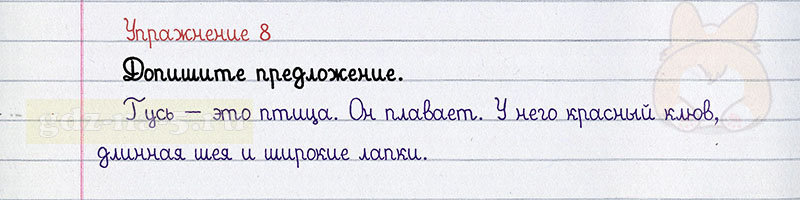 Упражнение 8
Допишите предложение.
Гусь — это птица. Он плавает. У него красный клюв,
длинная шея и широкие лапки.